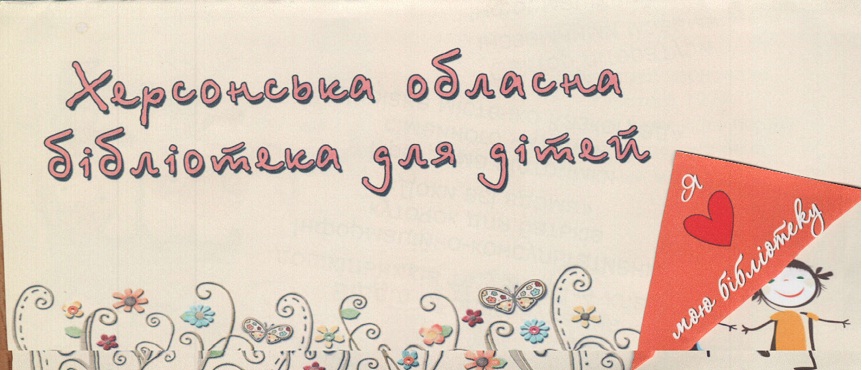 Херсонська обласна
бібліотека для дітей
Я
мою бібліотеку